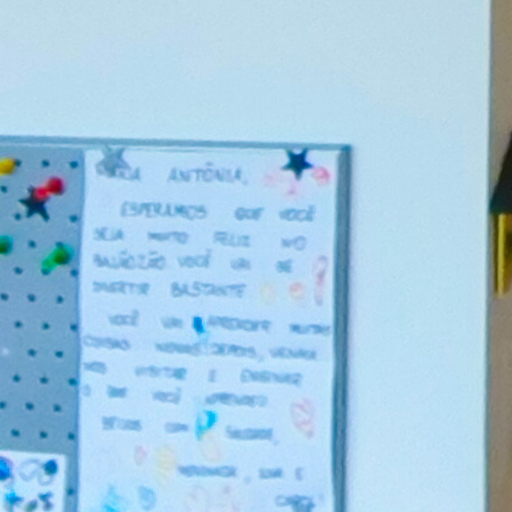 ANTÔNIA,
ESPERAMOS QUE VOCÊ
SEJA MUITO FELIZ NO
BALÃOZÃO VOCÊ VAI SE
DIVERTIR BASTANTE
VOCÊ VAI APRENDER MUITAS
COISAS NOVAS DEPOIS, VENHA
NOS VISITAR E ENSINAR
O QUE VOCÊ APRENDEU
BEIJOS COM SAUDADE,
E